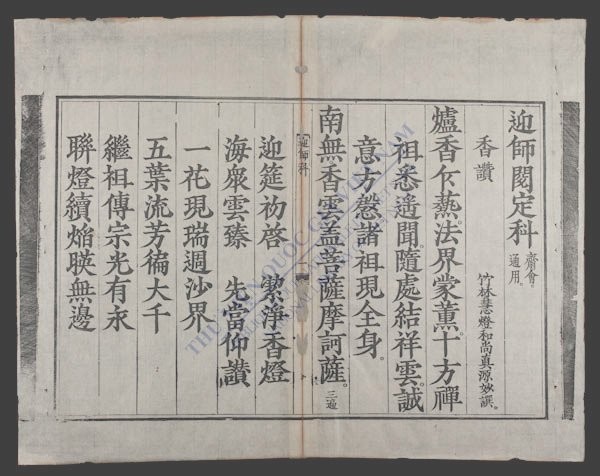 迎師閱定科 齋會通用。
香讚 竹林慧燈和尚真源妙譔。
爐香乍爇。法界蒙薰。十方禪
祖悉遙聞。隨處結祥雲。誠
意方慇。諸祖現全身。
南無香雲盖菩薩摩訶薩。三遍
迎師科
迎筵初啓 潔淨香燈
海衆雲臻 先當仰讃
一花現瑞週沙界
五葉流芳徧大千
繼祖傳宗光有永
聯燈續焰暎無邊
THƯ VIỆN QUỐC GIA VIỆT NAM